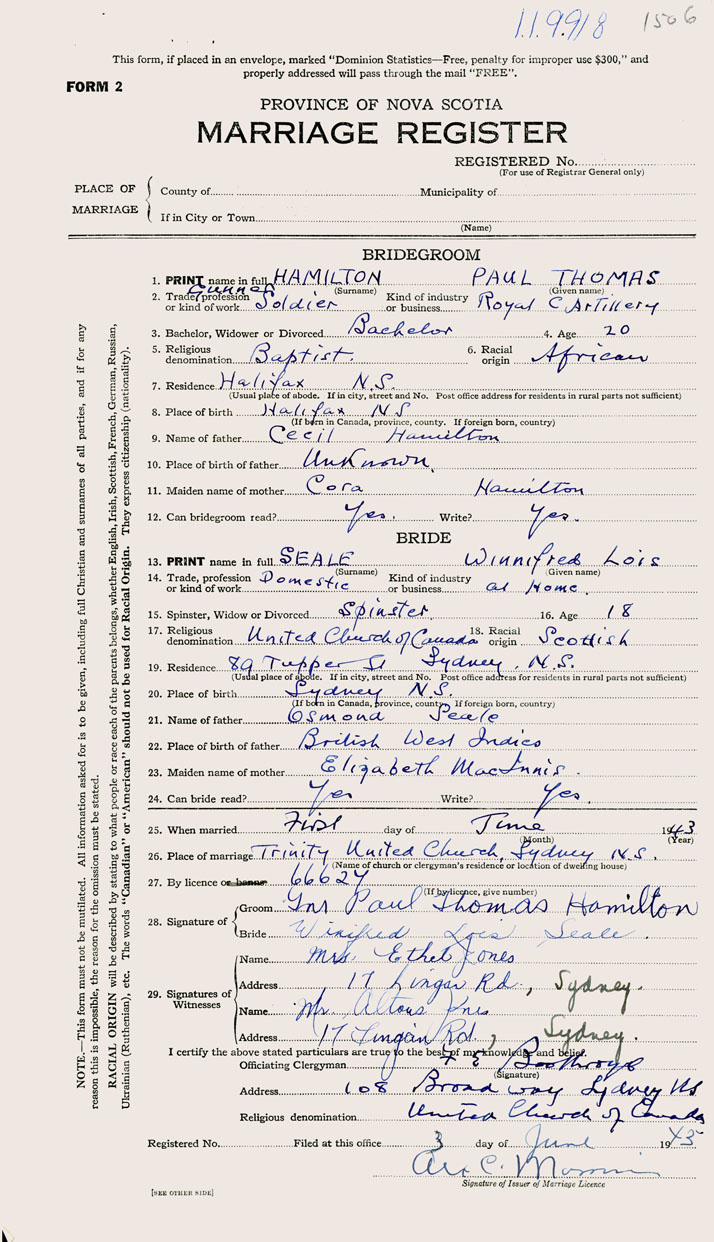 11.9918 1506
This form, if placed in an envelope, marked "Dominion Statistics—Free, penalty for improper use $300," and
properly addressed will pass through the mail "FREE".
FORM 2
PROVINCE OF NOVA SCOTIA
MARRIAGE REGISTER
REGISTERED No.
(For use of Registrar General only)
PLACE OF MARRIAGE
County of Municipality of
If in City or Town
(Name)
BRIDEGROOM
1. PRINT name in full HAMILTON PAUL THOMAS
(Surname) (Given name)
Gunner
2. Trade, profession or kind of work Soldier Kind of industry or business Royal C Artillery
3. Bachelor, Widower or Divorced Bachelor 4. Age 20
5. Religious denomination Baptist 6. Racial origin African
7. Residence Halifax N.S.
(Usual place of abode. If in city, street and No. Post office address for residents in rural parts not sufficient)
8. Place of birth Halifax N S
(If born in Canada, province, county. If foreign born, country)
9. Name of father Cecil Hamilton
10. Place of birth of father Unknown
11. Maiden name of mother Cora Hamilton
12. Can bridegroom read? Yes. Write? Yes.
BRIDE
13. PRINT name in full SEALE Winnifred Lois
(Surname) (Given name)
14. Trade, profession or kind of work Domestic Kind of industry or business at Home
15. Spinster, Widow or Divorced Spinster 16. Age 18
17. Religious denomination United Church of Canada 18. Racial origin Scottish
19. Residence 89 Tupper St Sydney, N.S.
(Usual place of abode. If in city, street and No. Post office address for residents in rural parts not sufficient)
20. Place of birth Sydney N.S.
(If born in Canada, province, county. If foreign born, country)
21. Name of father Osmond Seale
22. Place of birth of father British West Indies
23. Maiden name of mother Elizabeth MacInnis.
24. Can bride read? Yes Write? Yes.
25. When married First day of June 1943
(Month) (Year)
26. Place of marriage Trinity United Church, Sydney N.S.
(Name of church or clergyman's residence or location of dwelling house)
27. By licence or banns 66627
(If by licence, give number)
28. Signature of
Groom Gnr Paul Thomas Hamilton
Bride Winifred Lois Seale.
29. Signatures of Witnesses
Name Mrs. Ethel Jones
Address 17 Lingan Rd., Sydney.
Name Mr. Jones
Address 17 Lingan Rd., Sydney.
I certify the above stated particulars are true to the best of my knowledge and belief.
Officiating Clergyman
(Signature)
Address 108 Broadway Sydney NS
Religious denomination United Church of Canada
Registered No. Filed at this office 3 day of June 1943
Signature of Issuer of Marriage Licence
[SEE OTHER SIDE]
NOTE.—This form must not be mutilated. All information asked for is to be given, including full Christian and surnames of all parties, and if for any
reason this is impossible, the reason for the omission must be stated.
RACIAL ORIGIN will be described by stating to what people or race each of the parents belongs, whether English, Irish, Scottish, French, German, Russian,
Ukrainian (Ruthenian), etc. The words "Canadian" or "American" should not be used for Racial Origin. They express citizenship (nationality).